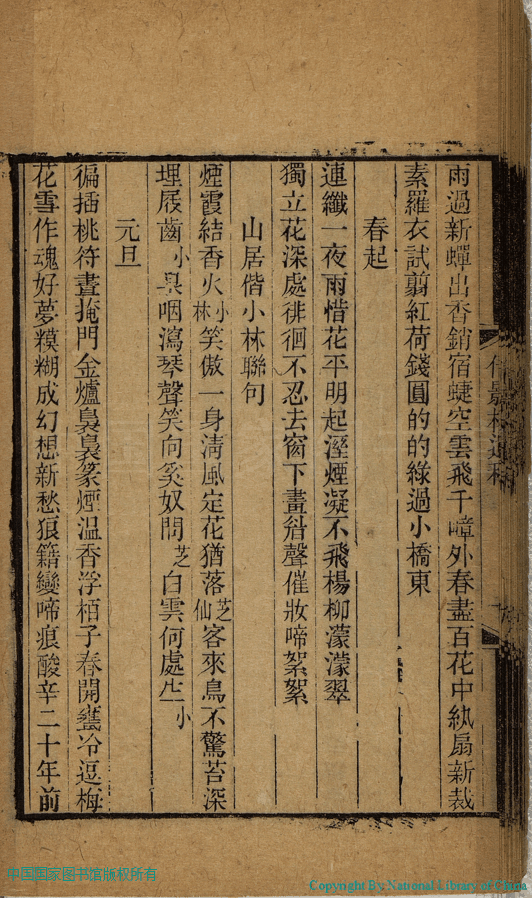 雨過新蟬出香銷宿蜨空雲飛千嶂外春盡百花中紈扇新裁
素羅衣試翦紅荷錢圓的的綠過小橋東
春起
連纖一夜雨惜花平明起溼煙凝不飛楊柳濛濛翠
獨立花深處徘徊不忍去窗下畫眉聲催妝啼絮絮
山居偕小林聯句
煙霞結香火小林笑傲一身清風定花猶落芝仙客來鳥不驚苔深
埋屐齒小泉咽瀉琴聲笑向奚奴問芝白雲何處生小
元旦
徧插桃符晝掩門金爐裊裊篆煙温香浮栢子春開甕冷逗梅
花雪作魂好夢糢糊成幻想新愁狼籍變啼痕酸辛二十年前
中国国家图书馆版权所有
Copyright By National Library of China